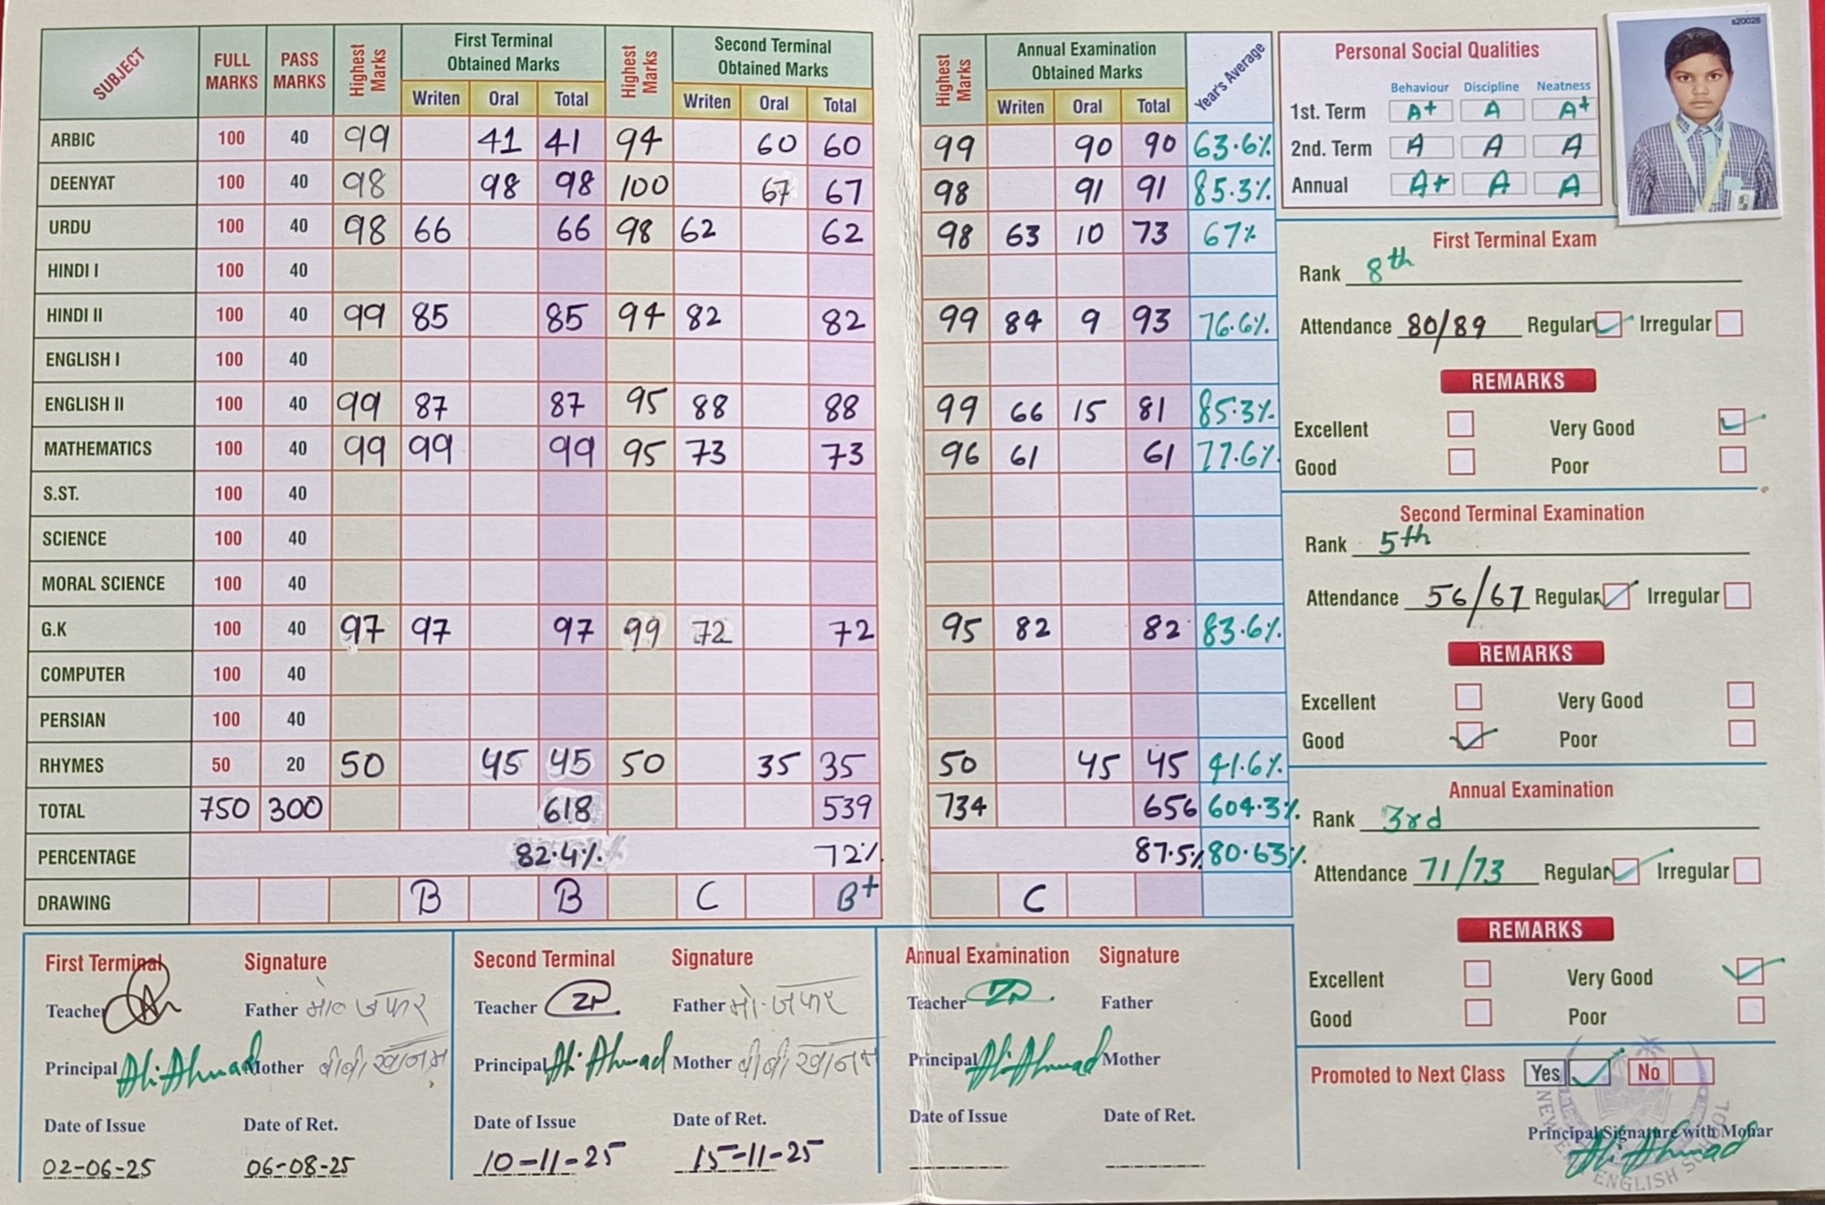 s20026
SUBJECT FULL MARKS PASS MARKS Highest Marks First Terminal Obtained Marks Highest Marks Second Terminal Obtained Marks Highest Marks Annual Examination Obtained Marks Year's Average
Writen Oral Total Writen Oral Total Writen Oral Total
ARBIC 100 40 99 41 41 94 60 60 99 90 90 63.6%
DEENYAT 100 40 98 98 98 100 67 67 98 91 91 85.3%
URDU 100 40 98 66 66 98 62 62 98 63 10 73 67%
HINDI I 100 40
HINDI II 100 40 99 85 85 94 82 82 99 84 9 93 76.6%
ENGLISH I 100 40
ENGLISH II 100 40 99 87 87 95 88 88 99 66 15 81 85.3%
MATHEMATICS 100 40 99 99 99 95 73 73 96 61 61 77.6%
S.ST. 100 40
SCIENCE 100 40
MORAL SCIENCE 100 40
G.K 100 40 97 97 97 99 72 72 95 82 82 83.6%
COMPUTER 100 40
PERSIAN 100 40
RHYMES 50 20 50 45 45 50 35 35 50 45 45 41.6%
TOTAL 750 300 618 539 734 656 604.3%
PERCENTAGE 82.4% 72% 87.5% 80.63%
DRAWING B B C B+ C
Personal Social Qualities
Behaviour Discipline Neatness
1st. Term A+ A A+
2nd. Term A A A
Annual A+ A A
First Terminal Exam
Rank 8th
Attendance 80/89 Regular Irregular
REMARKS
Excellent Very Good
Good Poor
Second Terminal Examination
Rank 5th
Attendance 56/67 Regular Irregular
REMARKS
Excellent Very Good
Good Poor
Annual Examination
Rank 3rd
Attendance 71/73 Regular Irregular
REMARKS
Excellent Very Good
Good Poor
Promoted to Next Class Yes No
Principal Signature with Mohar
Ali Ahmad
ENGLISH SCHOOL
First Terminal Signature
Teacher Father मो० जफर
Principal Ali Ahmad Mother बीबी खानम
Date of Issue Date of Ret.
02-06-25 06-08-25
Second Terminal Signature
Teacher Father मो. जफर
Principal Ali Ahmad Mother बीबी खानम
Date of Issue Date of Ret.
10-11-25 15-11-25
Annual Examination Signature
Teacher Father
Principal Ali Ahmad Mother
Date of Issue Date of Ret.